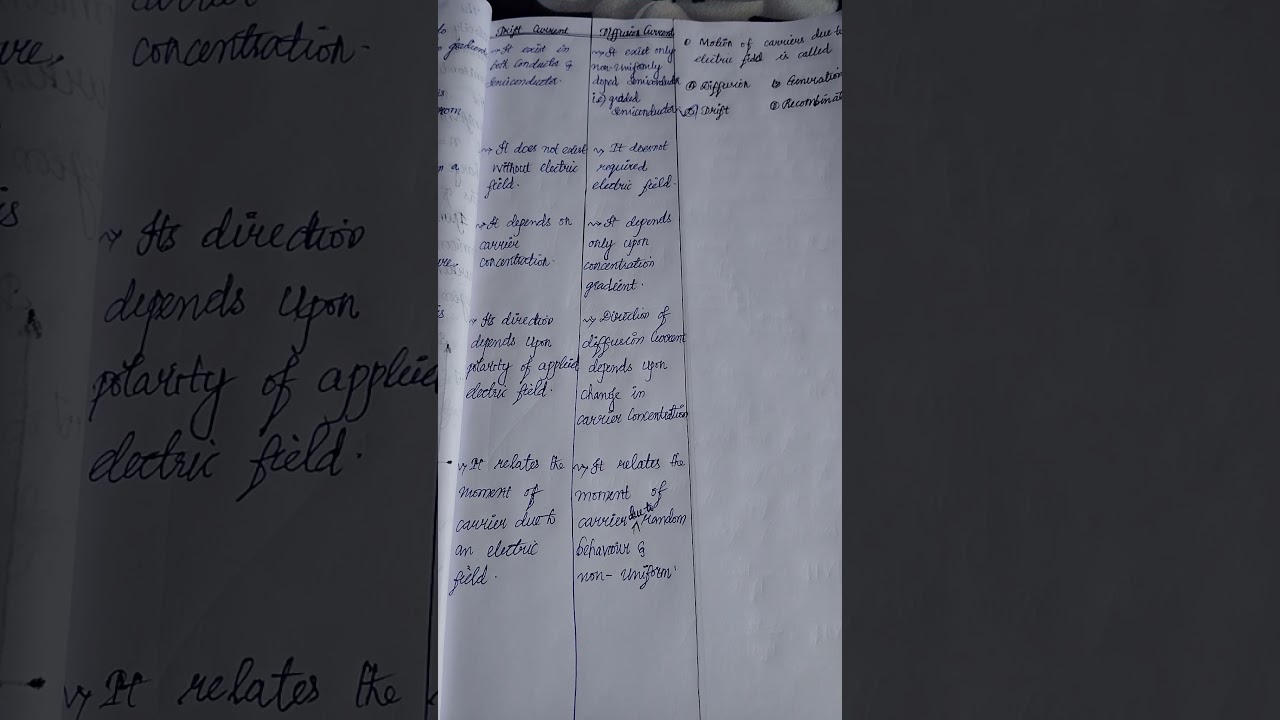 Drift Current
~> It exist in
both Conductor &
Semiconductor.
~> It does not exist
without electric
field.
~> It depends on
carrier
concentration.
~> Its direction
depends upon
polarity of applied
electric field.
~> It relates the
moment of
carrier due to
an electric
field.
Diffusion Current
~> It exist only
non-uniformly
doped semiconductor
i.e) graded
semiconductor
~> It doesnot
required
electric field.
~> It depends
only upon
concentration
gradient.
~> Direction of
diffusion Current
depends upon
change in
carrier Concentration
~> It relates the
moment of
carrier due to random
behaviour &
non-uniform
① Motion of carriers due to
electric field is called
ⓐ Diffusion ⓑ Generation
✓ⓒ Drift ⓓ Recombinat
concentration.
~> Its direction
depends upon
polarity of applied
electric field.
~> It relates the